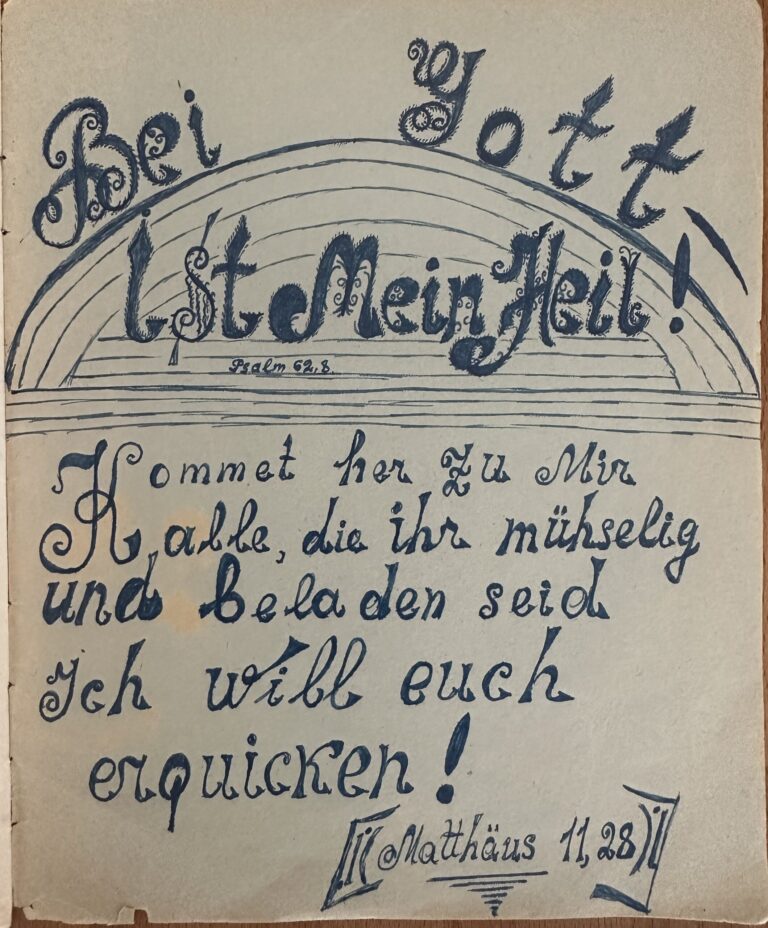 Bei Gott
ist Mein Heil!
Psalm 62,8.
Kommet her zu Mir
alle, die ihr mühselig
und beladen seid
Ich will euch
erquicken!
(Matthäus 11,28)